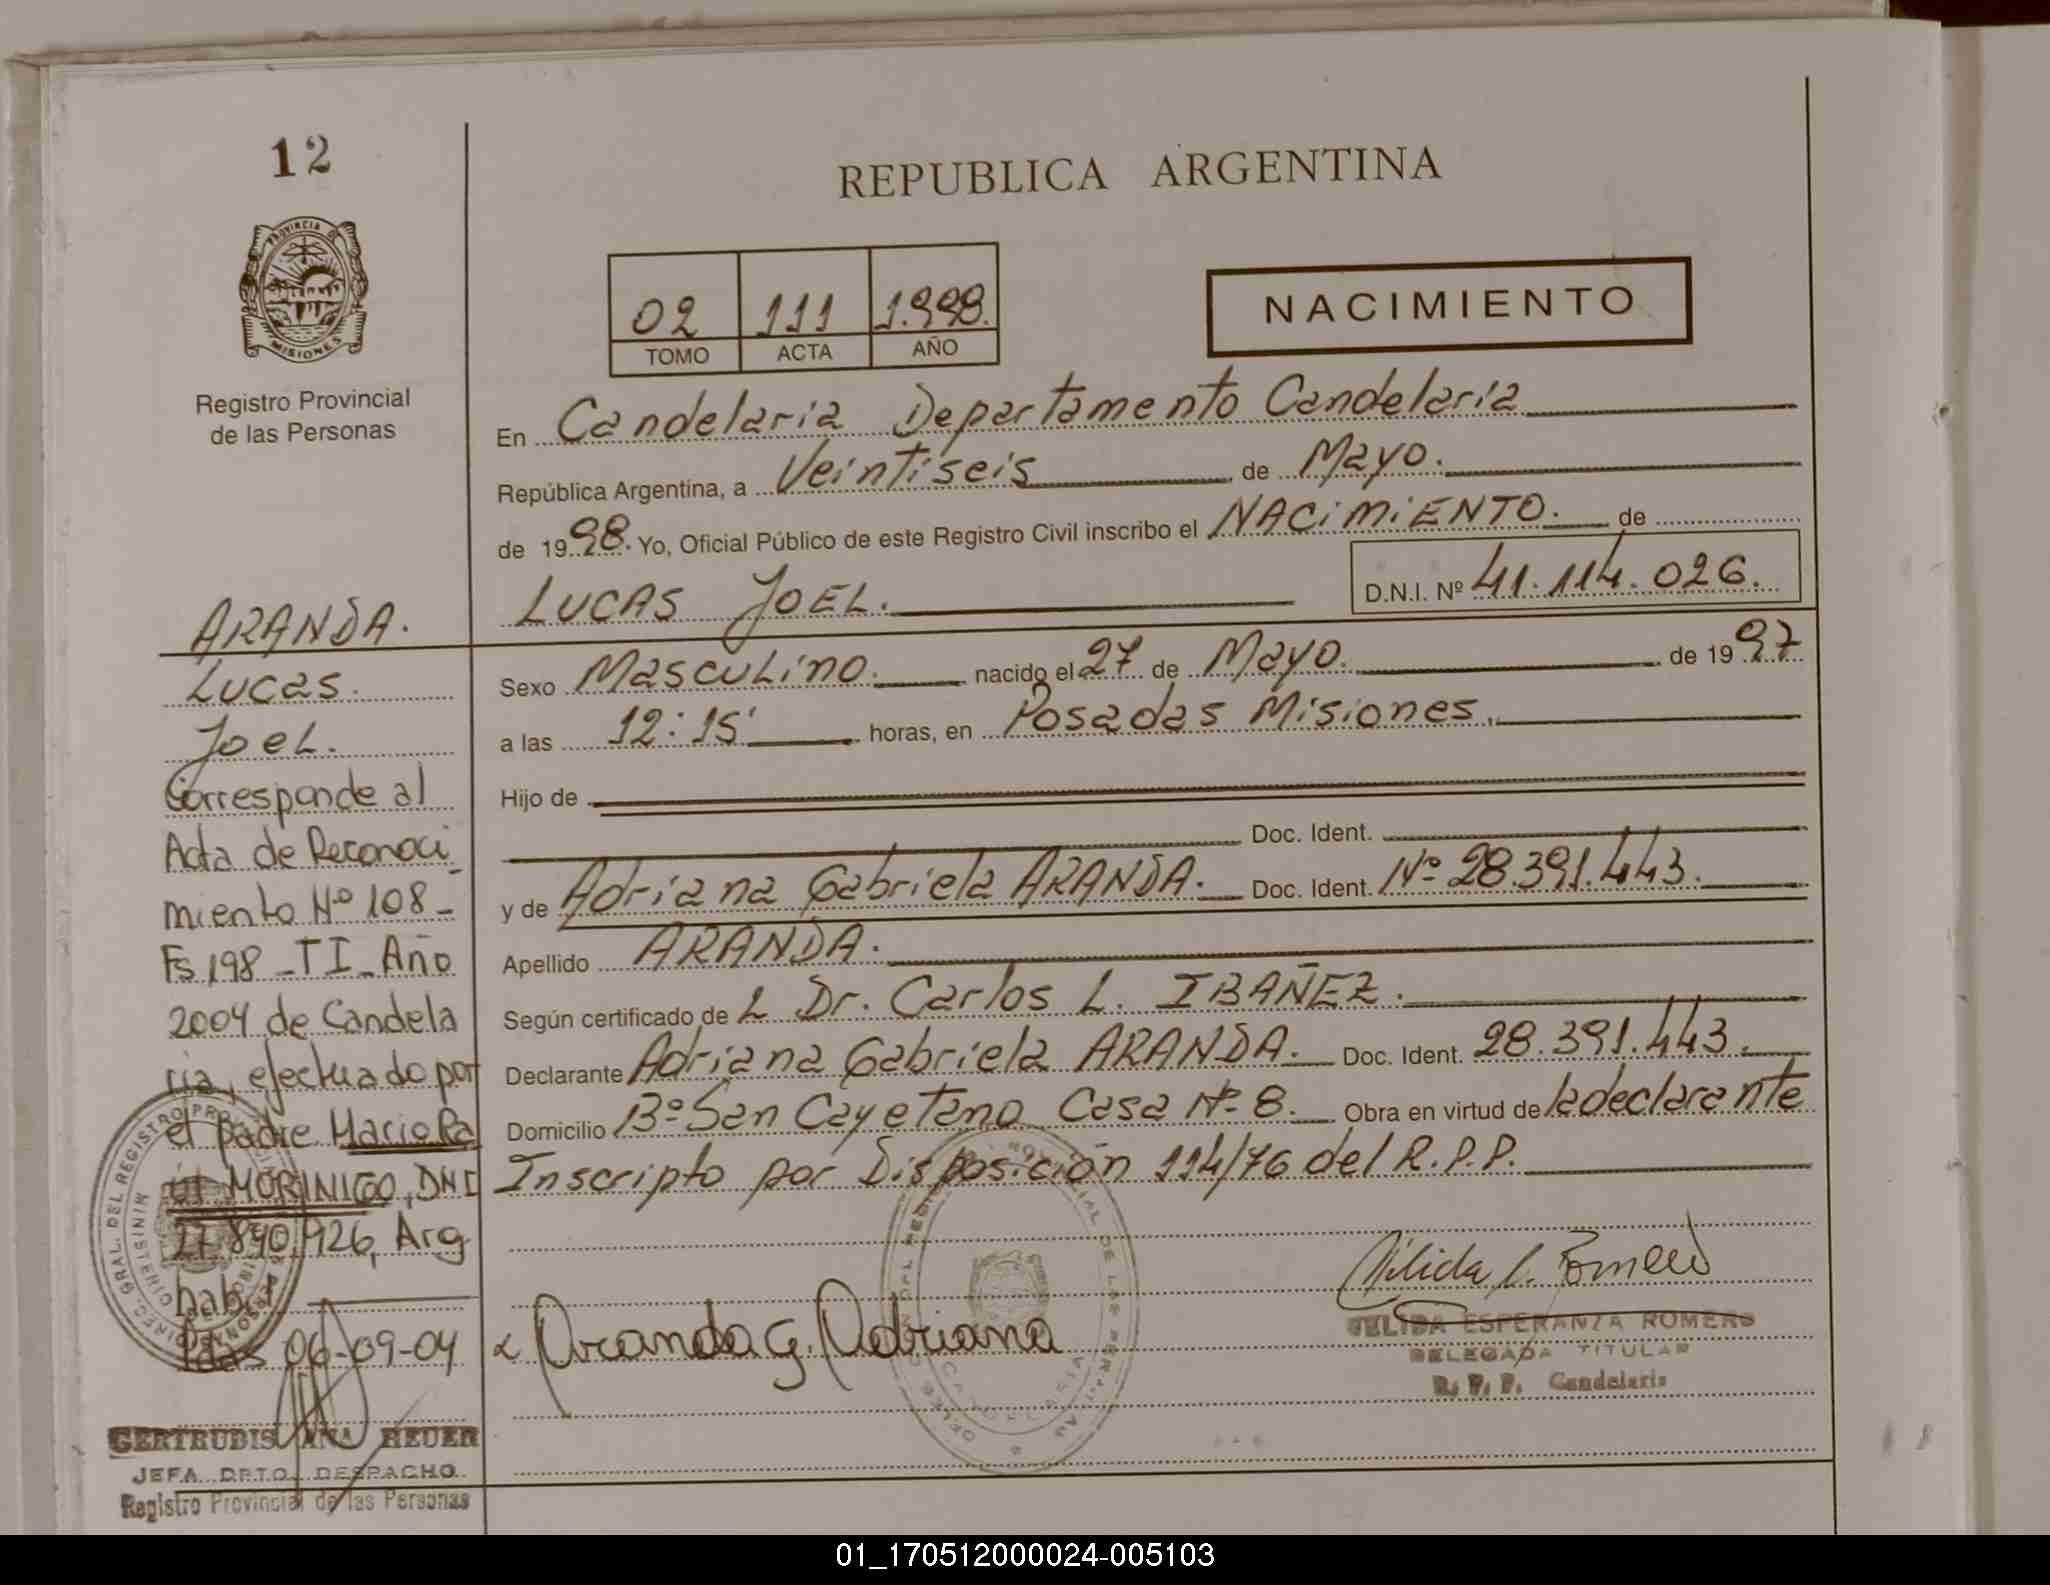 12
PROVINCIA DE
MISIONES
Registro Provincial
de las Personas
ARANDA.
Lucas.
Joel.
Corresponde al
Acta de Reconoci
miento Nº 108-
Fs 198 - T I - Año
2004 de Candela
ria, efectuado por
el padre Mario Ra
úl MORINIGO, DNI
27.840.926, Arg
habil
Pdas 06-09-04
GERTRUDIS ANA HEUER
JEFA DPTO. DESPACHO
Registro Provincial de las Personas
REPUBLICA ARGENTINA
02 111 1.998.
TOMO ACTA AÑO
NACIMIENTO
En Candelaria Departamento Candelaria
República Argentina, a Veintiseis de Mayo.
de 1998. Yo, Oficial Público de este Registro Civil inscribo el NACiMiENTO. de
LUCAS JOEL. D.N.I. Nº 41.114.026.
Sexo Masculino. nacido el 27 de Mayo. de 1997
a las 12:15' horas, en Posadas Misiones.
Hijo de
Doc. Ident.
y de Adriana Gabriela ARANDA. Doc. Ident. Nº 28.391.443.
Apellido ARANDA.
Según certificado de L Dr. Carlos L. IBAÑEZ.
Declarante Adriana Gabriela ARANDA. Doc. Ident. 28.391.443.
Domicilio Bº San Cayetano Casa Nº 8. Obra en virtud de la declarante
Inscripto por Disposición 114/76 del R.P.P.
Aranda G. Adriana
ESPERANZA ROMERO
DELEGADA TITULAR
R. P. P. Candelaria
01_170512000024-005103